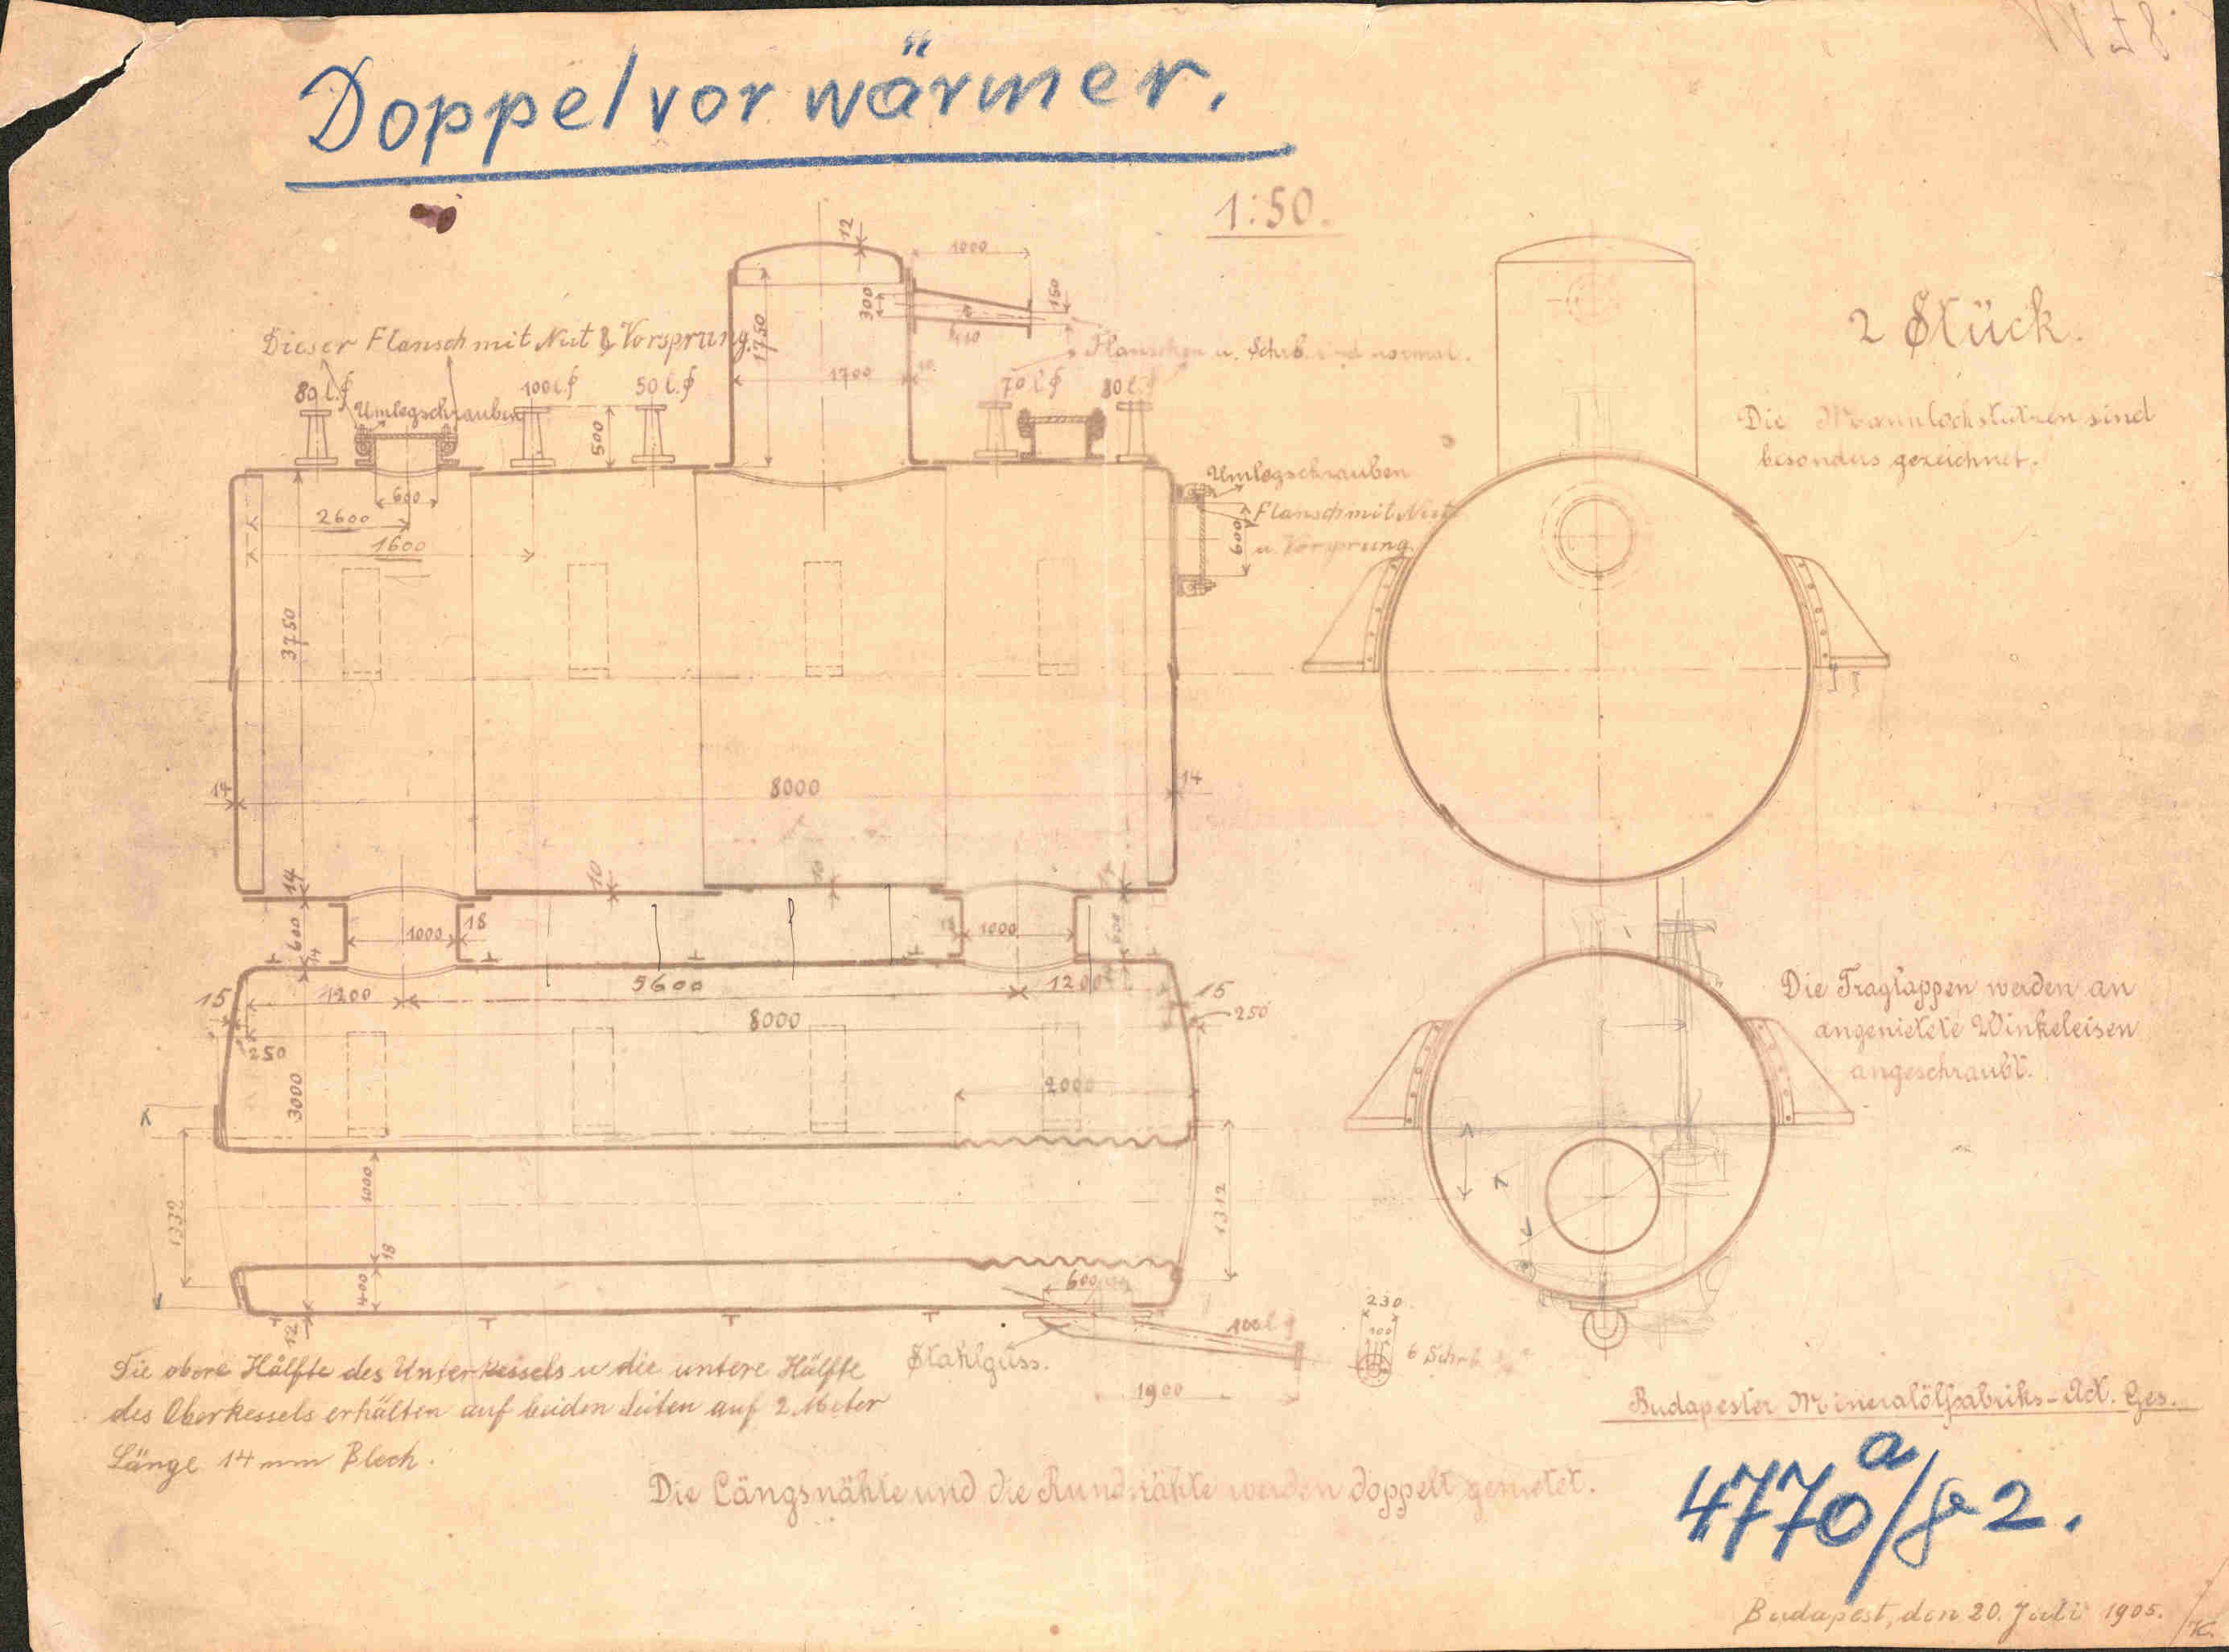 Doppelvorwärmer.
1:50.
2 Stück.
12
1000
300
150
1750
1700
Dieser Flansch mit Nut & Vorsprung.
Flanschen u. Schrb. sind normal.
80 l.ϕ
Umlegschrauben
100 l.ϕ
50 l.ϕ
500
70 l.ϕ
80 l.ϕ
Die Mannlochstutzen sind
besonders gezeichnet.
Umlegschrauben
Flansch mit Nut
u. Vorsprung
600
600
2600
1600
3750
14
8000
14
14
10
10
600
14
1000
18
18
1000
600
15
1200
5600
1200
15
250
8000
250
3000
2000
Die Traglappen werden an
angenietete Winkeleisen
angeschraubt.
1000
1332
1312
18
400
600
12
100 l.ϕ
230
100
6 Schrb.
1900
Stahlguss.
Die obere Hälfte des Unterkessels u die untere Hälfte
des Oberkessels erhalten auf beiden Seiten auf 2 Meter
Länge 14 mm Blech.
Die Längsnähte und die Rundnähte werden doppelt genietet.
Budapester Mineralölfabriks-Act. Ges.
4770a/g 2.
Budapest, den 20. Juli 1905.